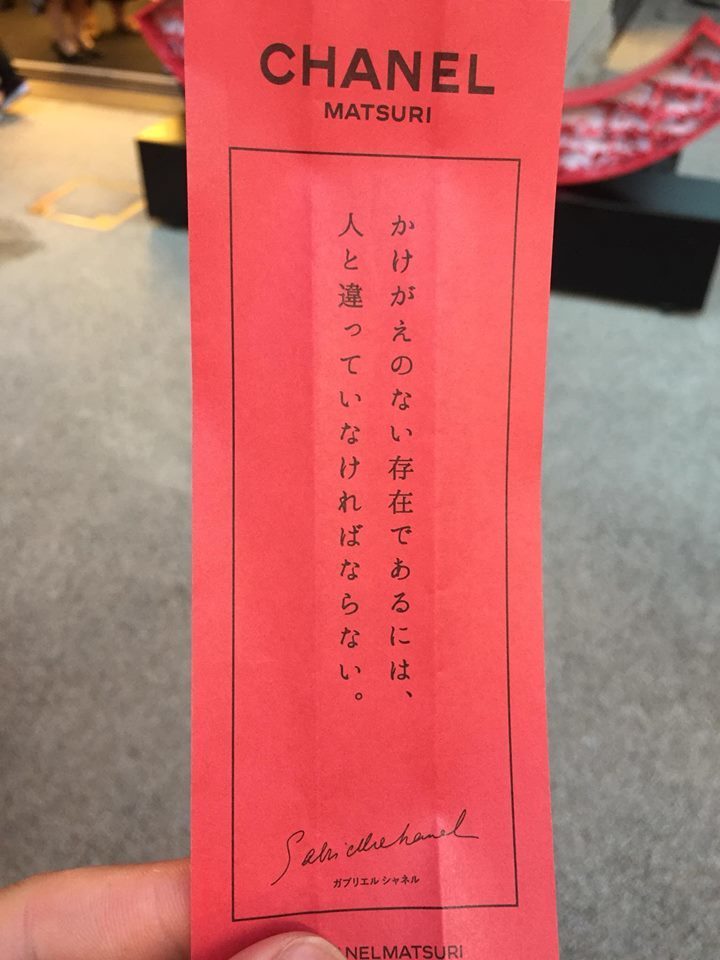 CHANEL
MATSURI
かけがえのない存在であるには、
人と違っていなければならない。
Gabrielle Chanel
ガブリエル シャネル
ANELMATSURI